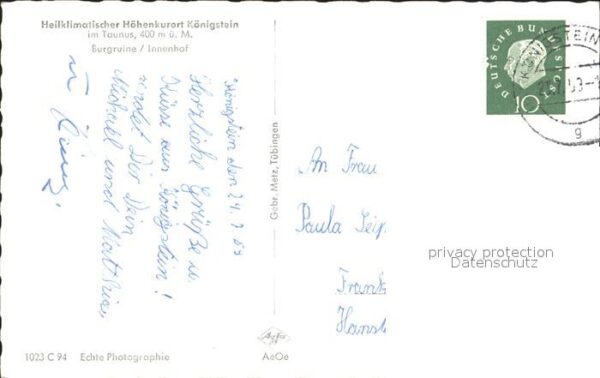 Heilklimatischer Höhenkurort Königstein
im Taunus, 400 m ü. M.
Burgruine / Innenhof
Königstein den 24. 7. 59
Herzliche Grüße u.
Küsse aus Königstein!
sendet Dir Dein
Michael und
Gebr. Metz, Tübingen
DEUTSCHE BUNDESPOST
10
STEIN
g
An Frau
Paula
privacy protection
Datenschutz
Agfa
1023 C 94 Echte Photographie
AeOe